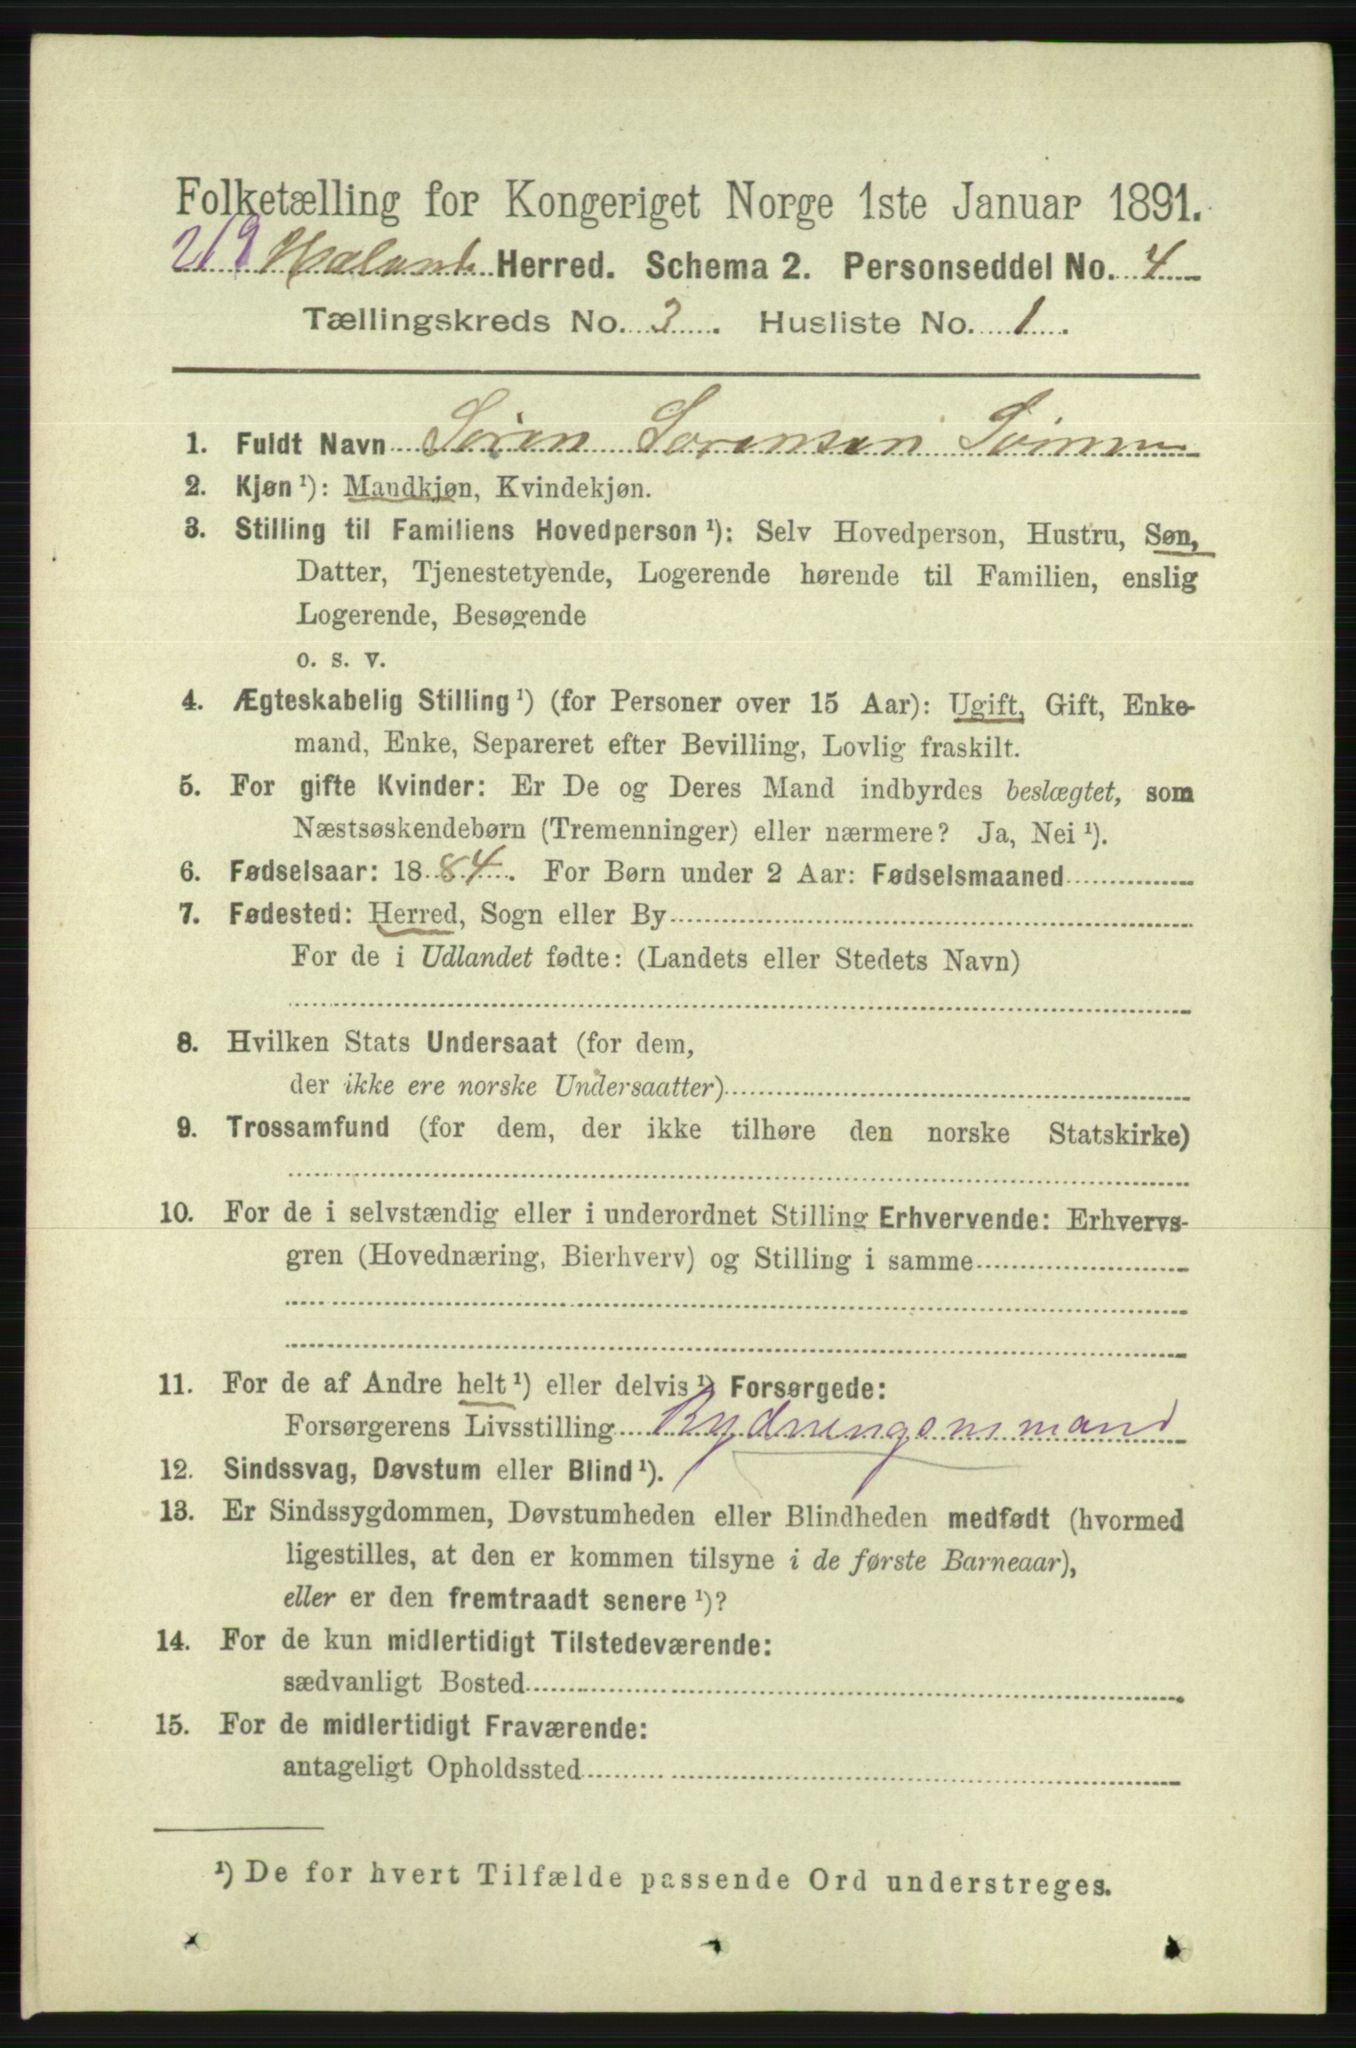 Folketælling for Kongeriget Norge 1ste Januar 1891.
219 Herred. Schema 2. Personseddel No. 4
Tællingskreds No. 3. Husliste No. 1.
1. Fuldt Navn Søren Sørensen
2. Kjøn ¹): Mandkjøn, Kvindekjøn.
3. Stilling til Familiens Hovedperson ¹): Selv Hovedperson, Hustru, Søn,
Datter, Tjenestetyende, Logerende hørende til Familien, enslig
Logerende, Besøgende
o. s. v.
4. Ægteskabelig Stilling ¹) (for Personer over 15 Aar): Ugift, Gift, Enke-
mand, Enke, Separeret efter Bevilling, Lovlig fraskilt.
5. For gifte Kvinder: Er De og Deres Mand indbyrdes beslægtet, som
Næstsøskendebørn (Tremenninger) eller nærmere? Ja, Nei ¹).
6. Fødselsaar: 1884. For Børn under 2 Aar: Fødselsmaaned
7. Fødested: Herred, Sogn eller By
For de i Udlandet fødte: (Landets eller Stedets Navn)
8. Hvilken Stats Undersaat (for dem,
der ikke ere norske Undersaatter)
9. Trossamfund (for dem, der ikke tilhøre den norske Statskirke)
10. For de i selvstændig eller i underordnet Stilling Erhvervende: Erhvervs-
gren (Hovednæring, Bierhverv) og Stilling i samme
11. For de af Andre helt ¹) eller delvis ¹) Forsørgede:
Forsørgerens Livsstilling Rydningsmand
12. Sindssvag, Døvstum eller Blind ¹).
13. Er Sindssygdommen, Døvstumheden eller Blindheden medfødt (hvormed
ligestilles, at den er kommen tilsyne i de første Barneaar),
eller er den fremtraadt senere ¹)?
14. For de kun midlertidigt Tilstedeværende:
sædvanligt Bosted
15. For de midlertidigt Fraværende:
antageligt Opholdssted
¹) De for hvert Tilfælde passende Ord understreges.